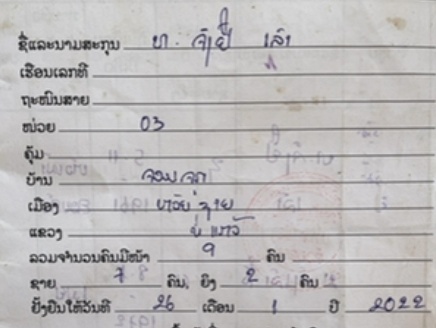 ຊື່ແລະນາມສະກຸນ ທ. ຈໍຢີ່ ເລົາ
ເຮືອນເລກທີ
ຖະໜົນສາຍ
ໜ່ວຍ 03
ຄຸ້ມ
ບ້ານ ຈອມຈຸກ
ເມືອງ ຫວ້ຍຊາຍ
ແຂວງ
ລວມຈຳນວນຄົນມີໜ້າ 9 ຄົນ
ຊາຍ 7 ຄົນ, ຍິງ 2 ຄົນ
ຢັ້ງຢືນໃຫ້ວັນທີ 26 ເດືອນ 1 ປີ 2022